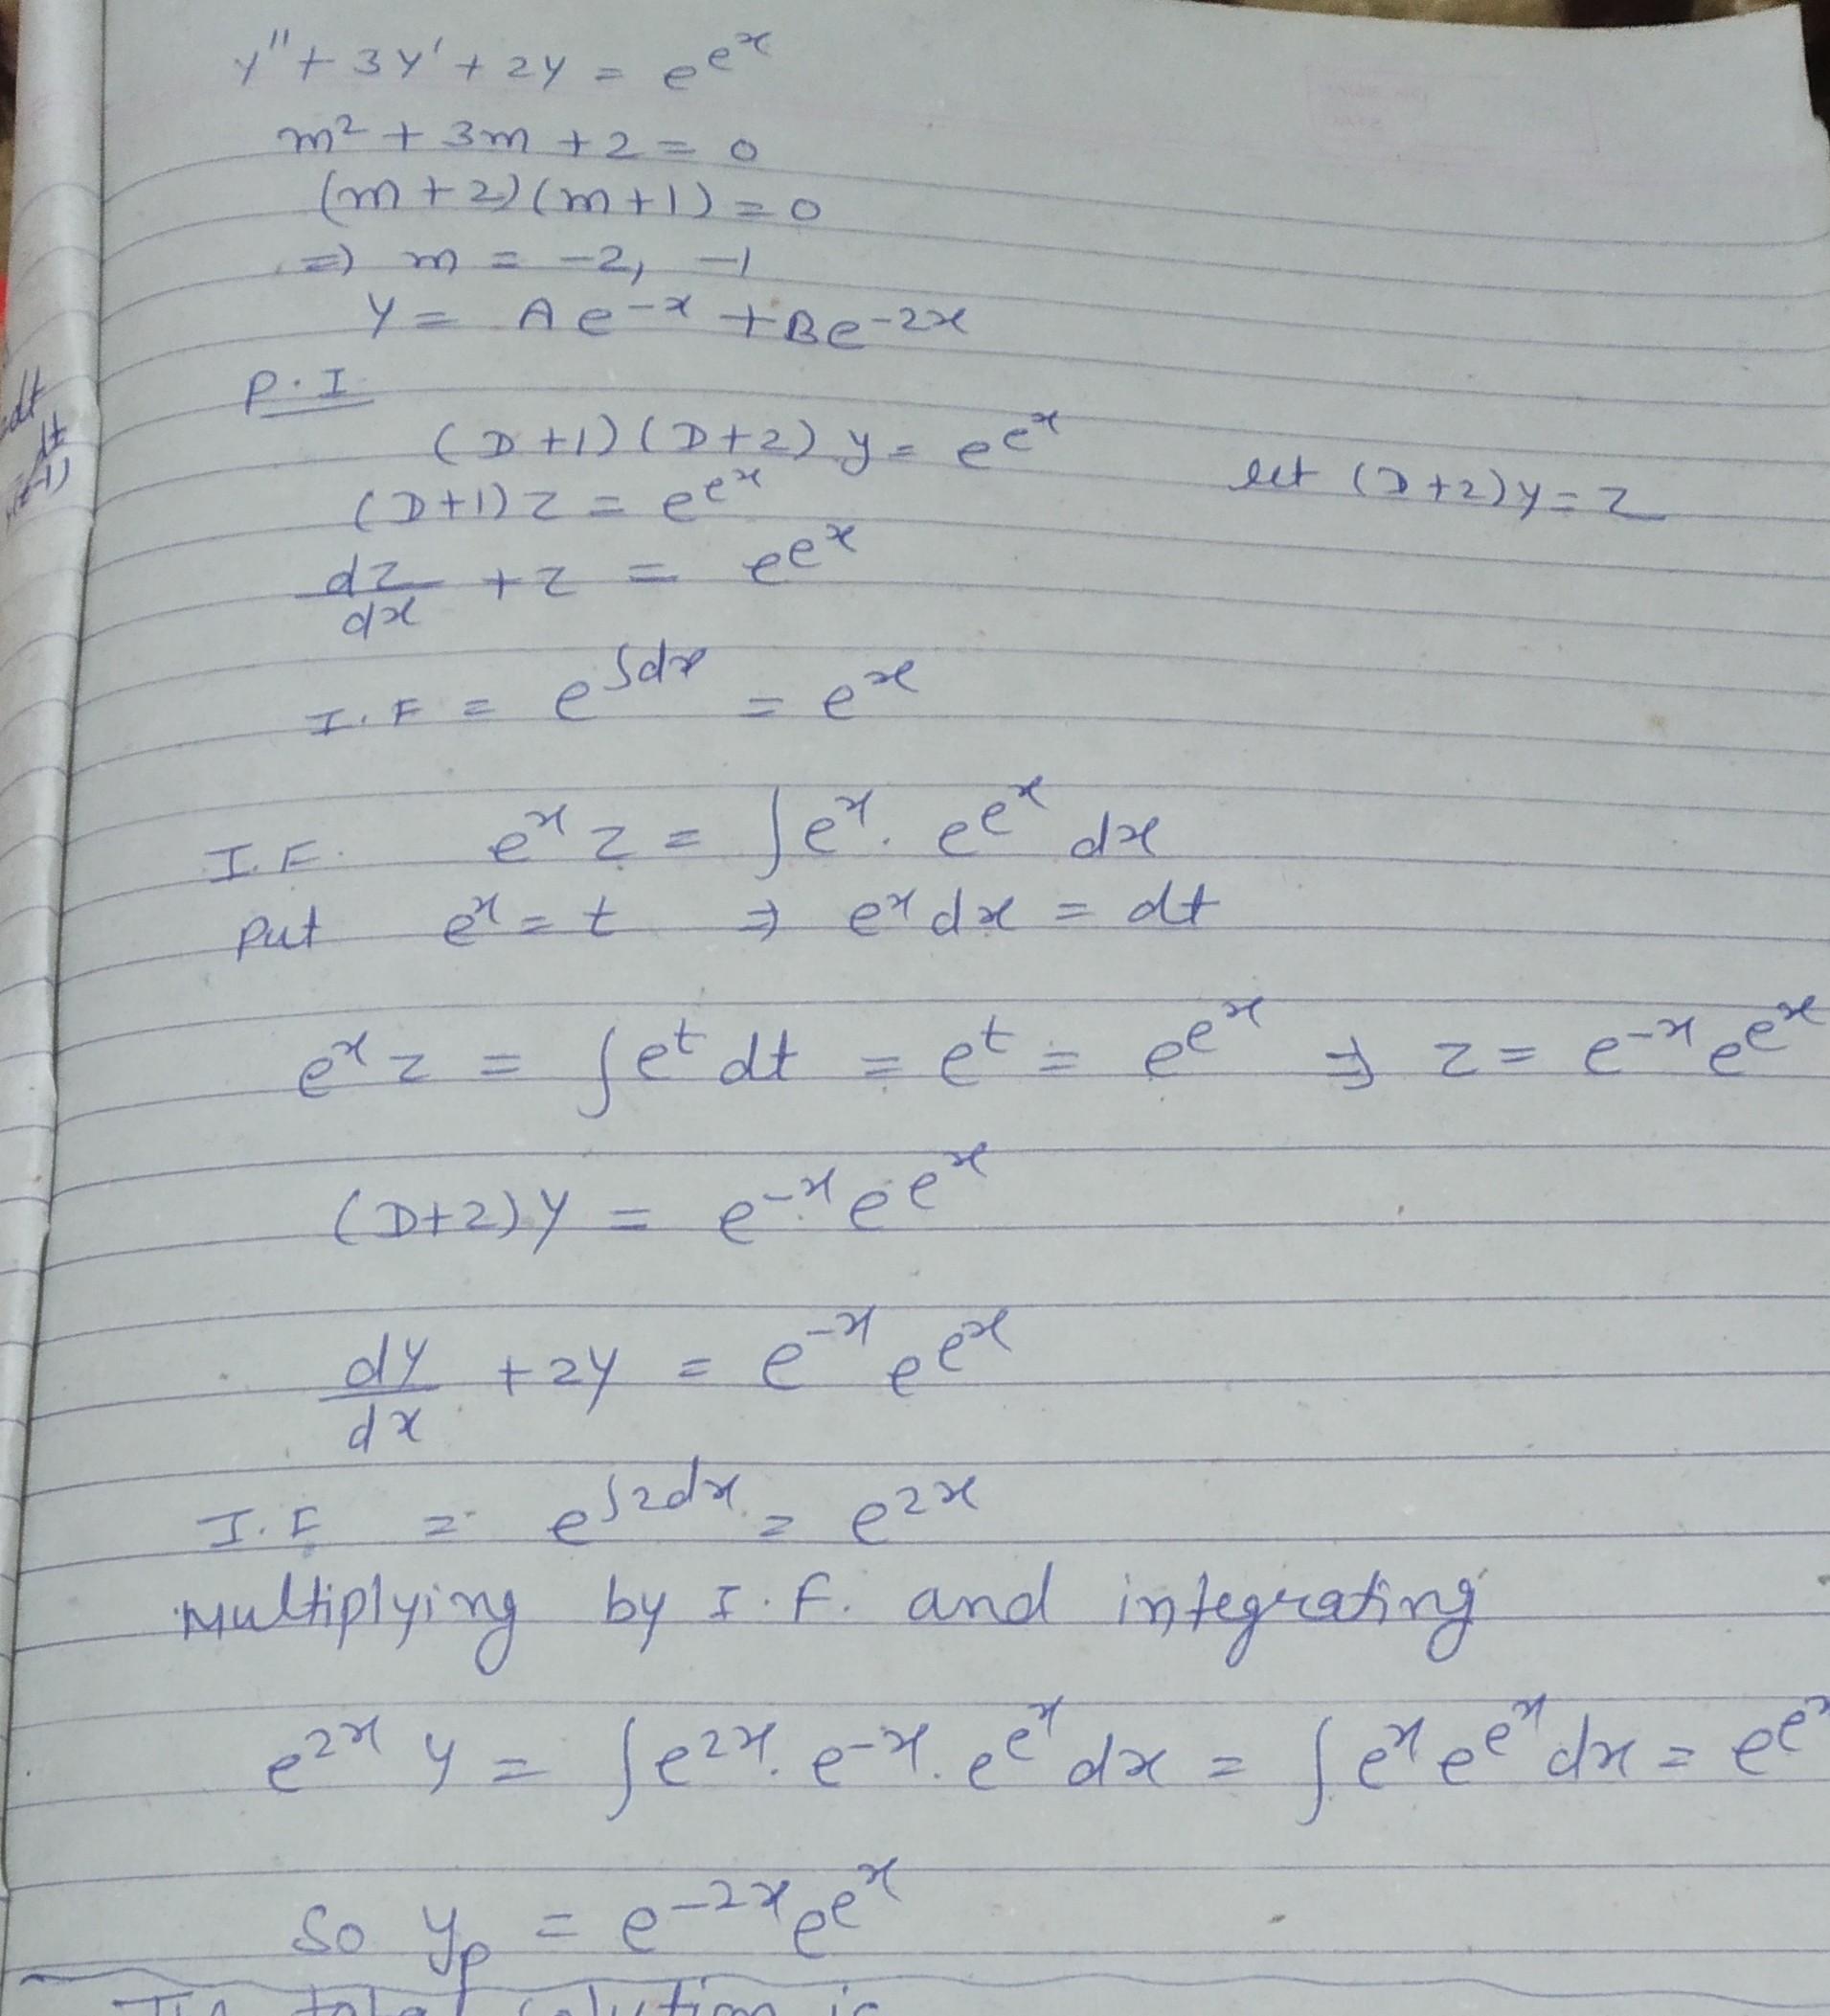 y'' + 3y' + 2y = e^{e^x}
m² + 3m + 2 = 0
(m + 2)(m + 1) = 0
⇒ m = -2, -1
y = Ae^{-x} + Be^{-2x}
P.I.
(D + 1)(D + 2) y = e^{e^x} let (D + 2)y = z
(D + 1) z = e^{e^x}
dz/dx + z = e^{e^x}
I.F = e^{∫dx} = e^x
I.F. e^x z = ∫e^x . e^{e^x} dx
Put e^x = t ⇒ e^x dx = dt
e^x z = ∫e^t dt = e^t = e^{e^x} ⇒ z = e^{-x} e^{e^x}
(D+2)y = e^{-x} e^{e^x}
dy/dx + 2y = e^{-x} e^{e^x}
I.F = e^{∫2dx} = e^{2x}
Multiplying by I.F. and integrating
e^{2x} y = ∫e^{2x} . e^{-x} . e^{e^x} dx = ∫e^x e^{e^x} dx = e^{e^x}
So y_p = e^{-2x} e^{e^x}
total solution is